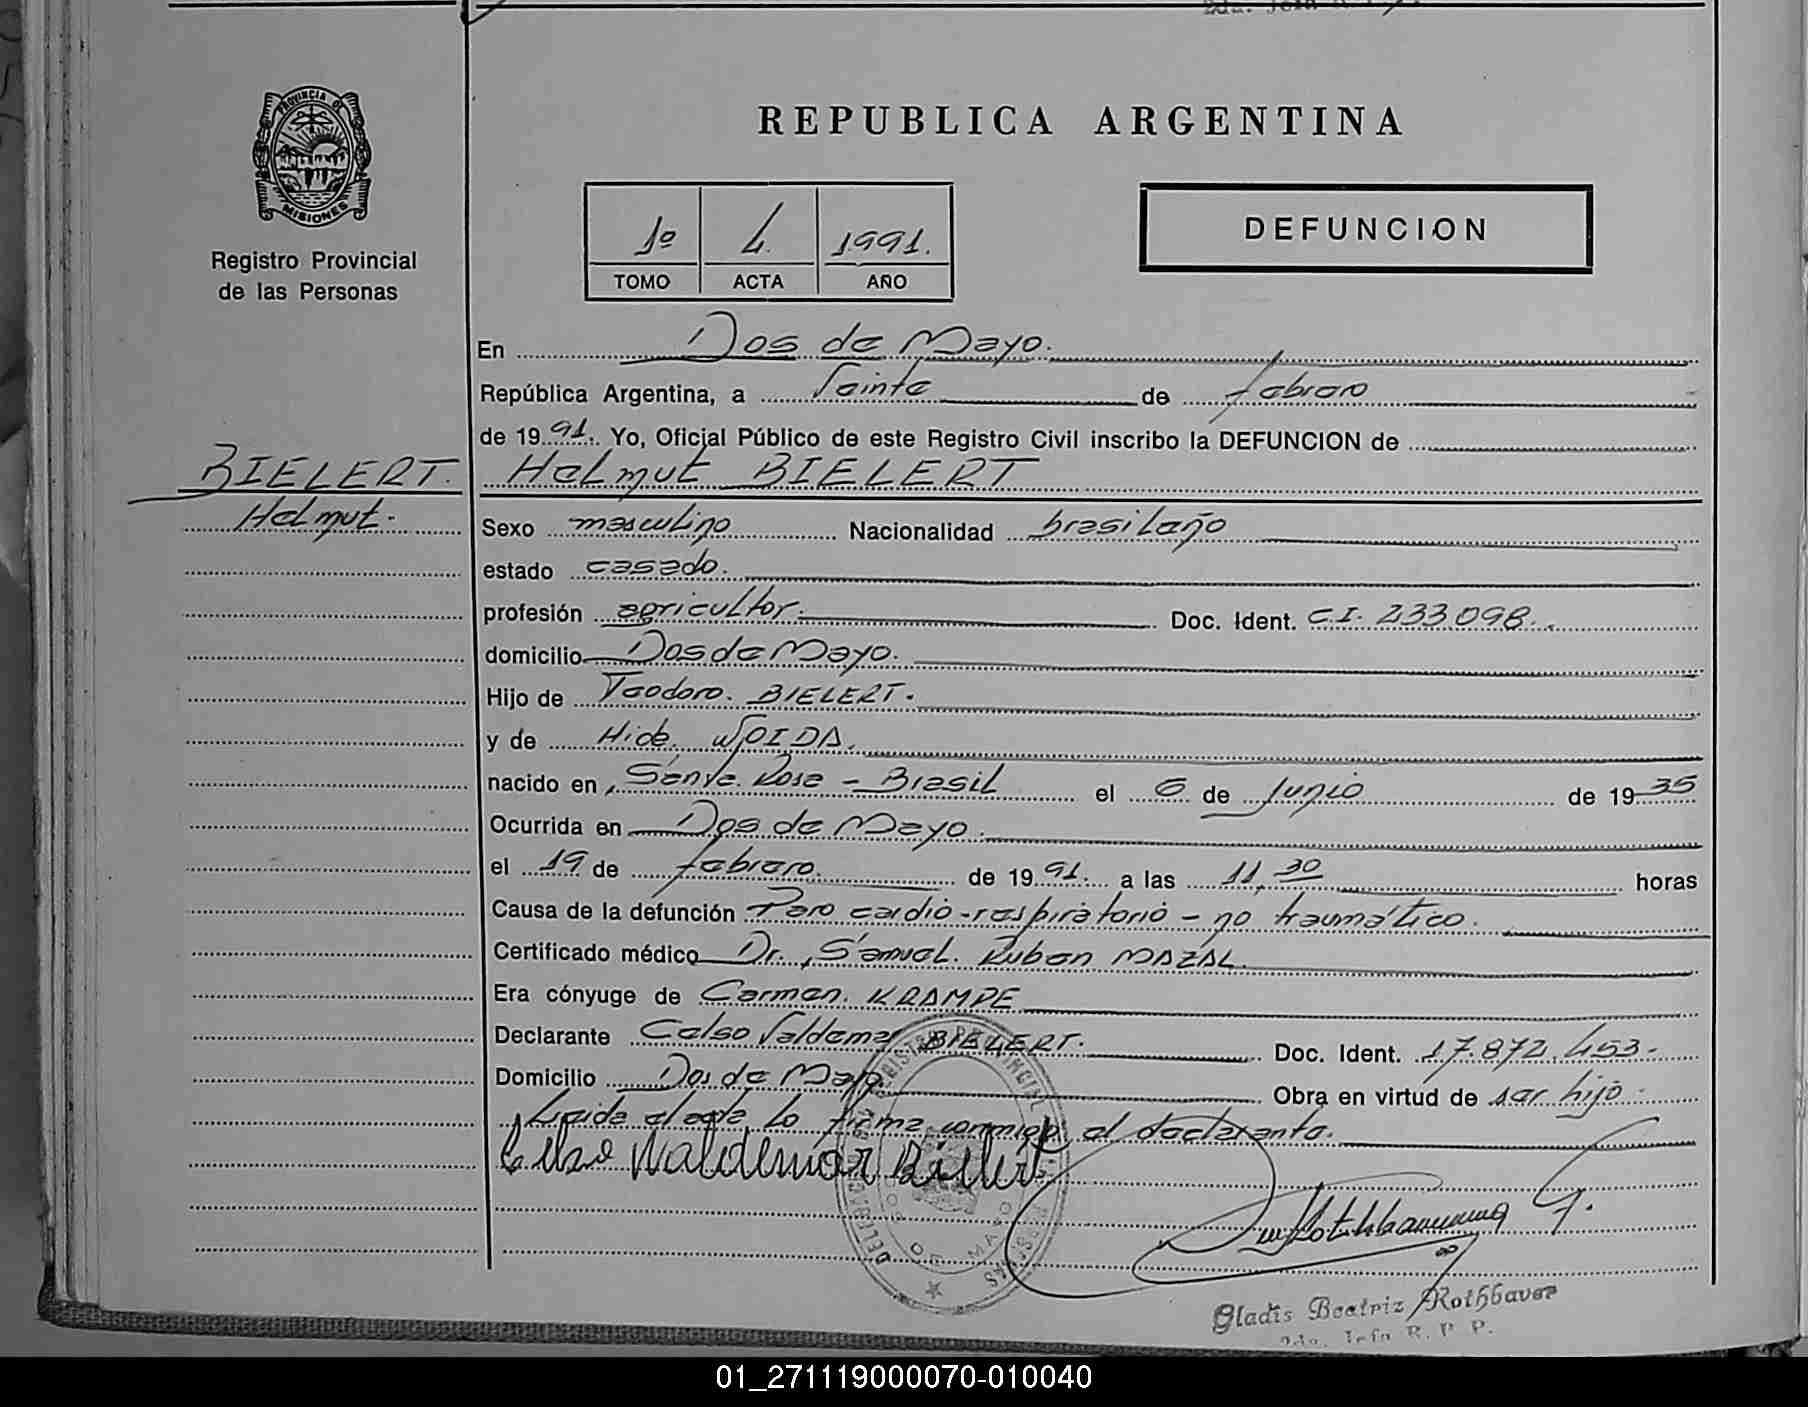 PROVINCIA DE
MISIONES
Registro Provincial
de las Personas
REPUBLICA ARGENTINA
1º 4. 1991.
TOMO ACTA AÑO
DEFUNCION
En Dos de Mayo.
República Argentina, a Veinte de febrero
de 1991. Yo, Oficial Público de este Registro Civil inscribo la DEFUNCION de
BIELERT. Helmut BIELERT
Helmut.
Sexo masculino Nacionalidad brasilaño
estado casado.
profesión agricultor. Doc. Ident. C.I. 233.098.
domicilio Dos de Mayo.
Hijo de Teodoro. BIELERT.
y de WOIDA.
nacido en Rosa - Brasil el 6 de Junio de 1935
Ocurrida en Dos de Mayo.
el 19 de febrero. de 1991. a las 11,30 horas
Causa de la defunción Paro cardio-respiratorio - no traumático.
Certificado médico Dr. Samuel. Ruben MAZAL.
Era cónyuge de Carmen. KRAMPE
Declarante Celso Valdemar BIELERT. Doc. Ident. 17.872.453.
Domicilio Dos de Mayo Obra en virtud de ser hijo.
Leida el acta lo firma conmigo el declarante.
Celso Waldemar Bielert
DE MAYO
Gladis Beatriz Rothbauer
2da. Jefa R. P. P.
01_271119000070-010040